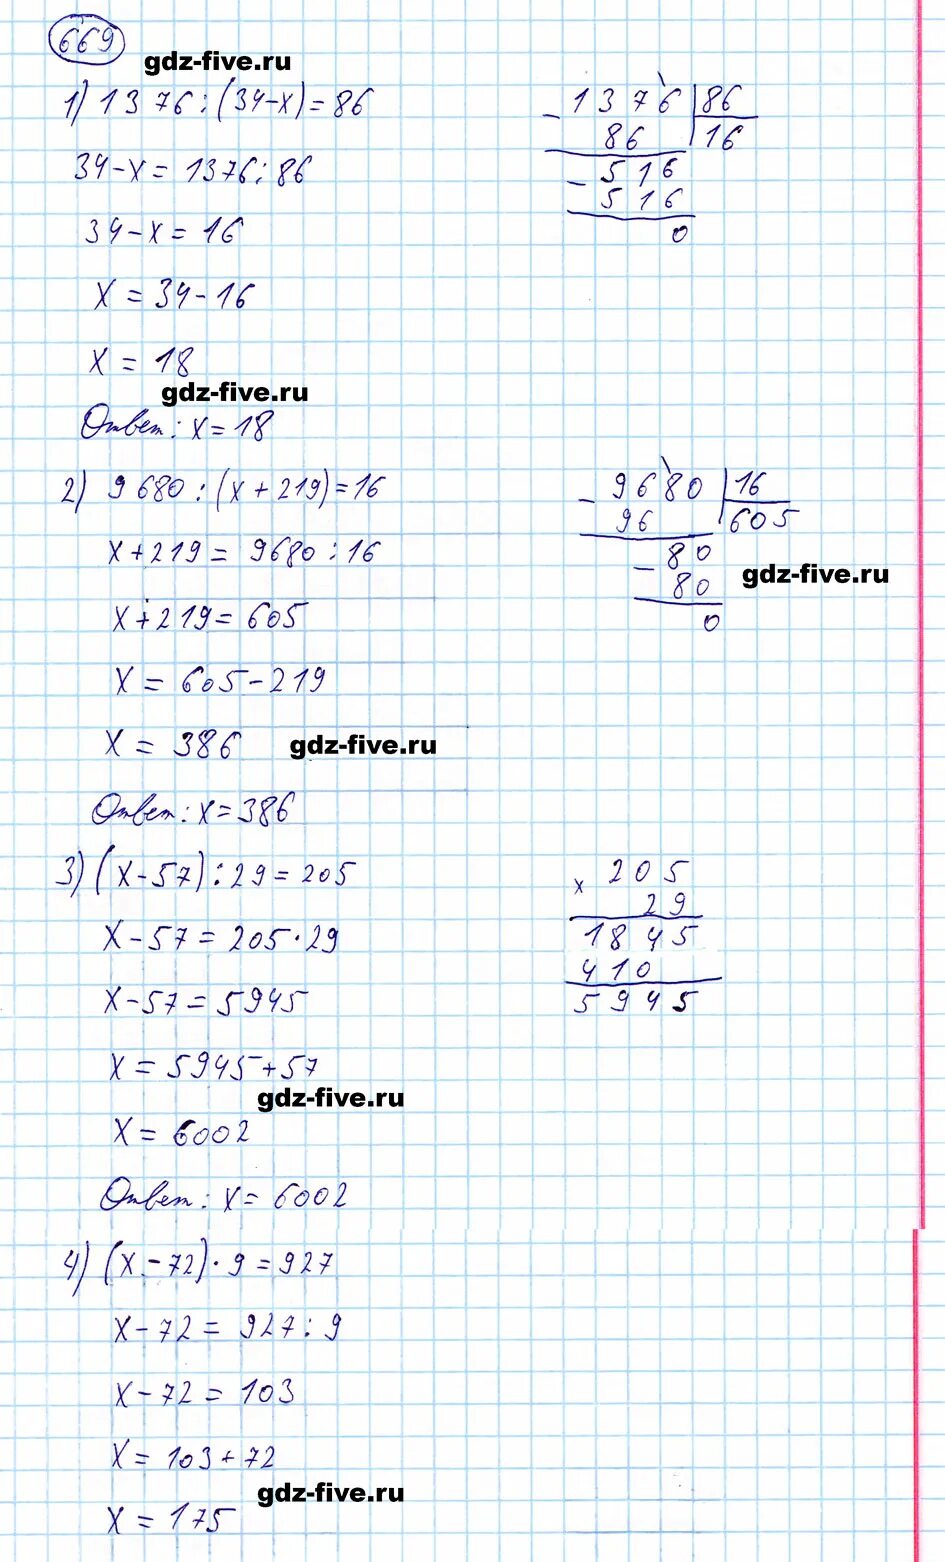 669
gdz-five.ru
1) 1376 : (34-x) = 86
34-x = 1376 : 86
34-x = 16
x = 34-16
x = 18
gdz-five.ru
Ответ: x = 18
- 1376 | 86
86 | 16
- 516
516
0
2) 9680 : (x + 219) = 16
x + 219 = 9680 : 16
x + 219 = 605
x = 605 - 219
x = 386
gdz-five.ru
Ответ: x = 386
- 9680 | 16
96 | 605
- 80
80
0
gdz-five.ru
3) (x - 57) : 29 = 205
x - 57 = 205 · 29
x - 57 = 5945
x = 5945 + 57
gdz-five.ru
x = 6002
Ответ: x = 6002
x 205
29
1845
410
5945
4) (x - 72) · 9 = 927
x - 72 = 927 : 9
x - 72 = 103
x = 103 + 72
gdz-five.ru
x = 175